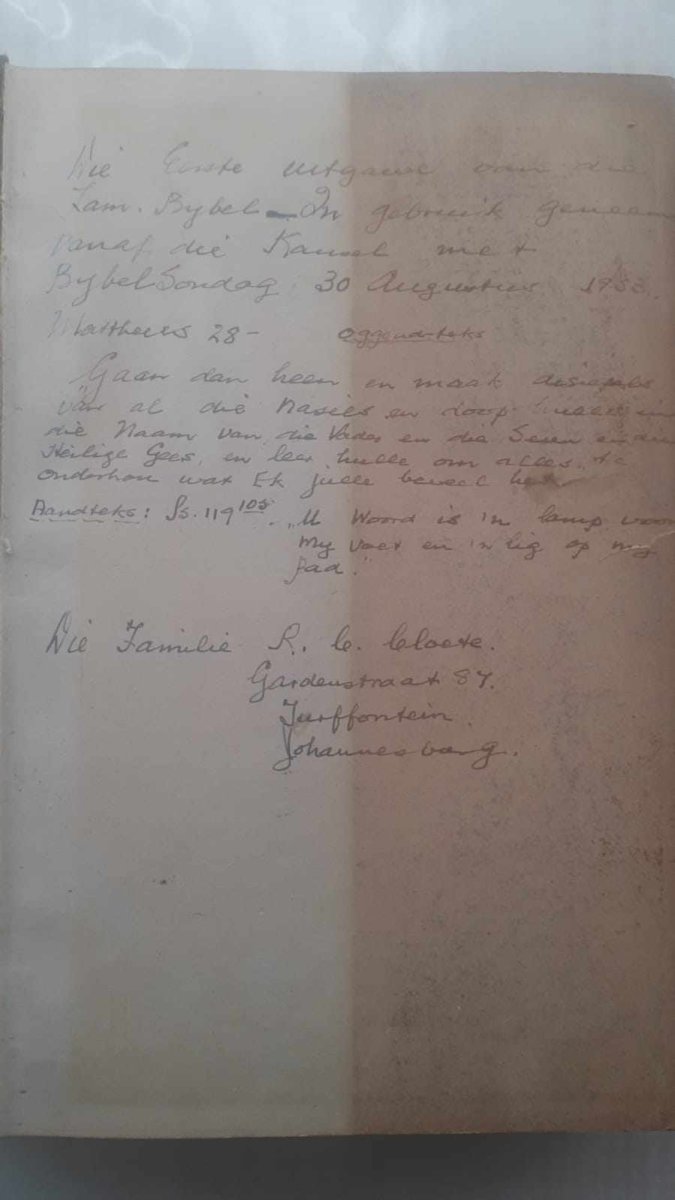 Die Eerste uitgawe van die
Fam. Bybel - In gebruik geneem
vanaf die Kansel met
Bybel Sondag 30 Augustus
Mattheus 28 - oggendteks
"Gaan dan heen en maak disiepels
van al die Nasies en doop hulle in
die Naam van die Vader en die Seun en die
Heilige Gees, en leer hulle om alles te
onderhou wat Ek julle beveel het
Aandteks: Ps. 119 105. "U Woord is 'n lamp voor
My Voet en 'n lig op my
Pad."
Die Familie R. C. Cloete.
Gardenstraat 87.
Turffontein.
Johannesburg.